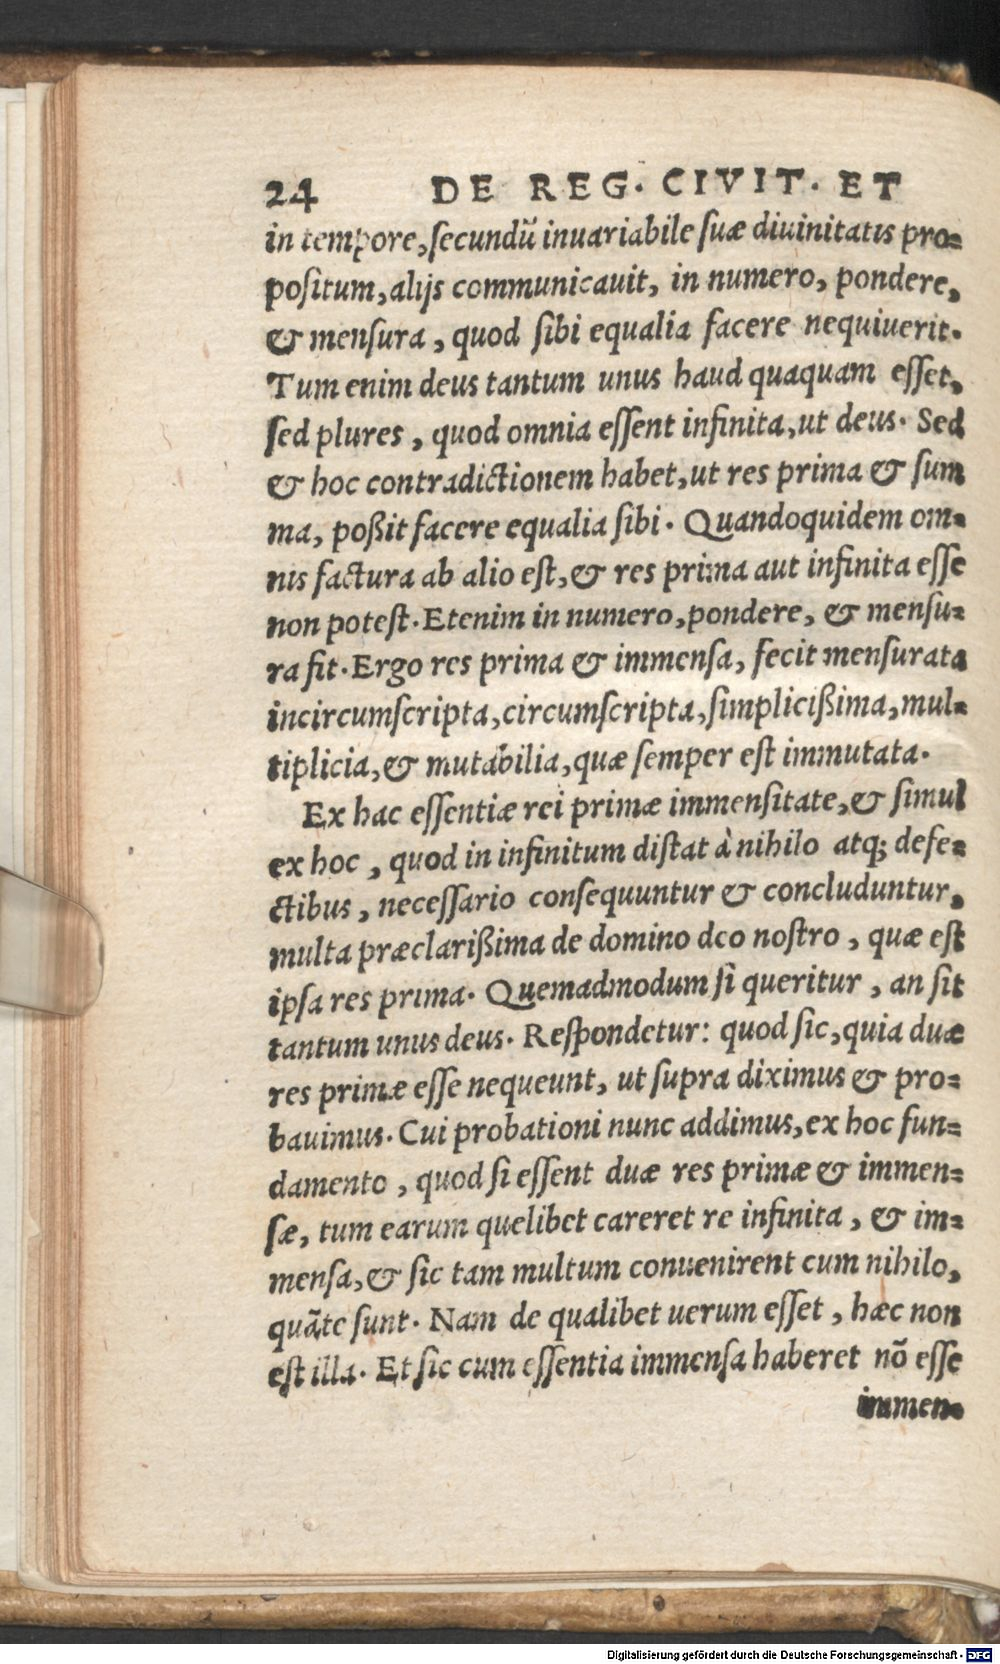 24 DE REG. CIVIT. ET
in tempore, secundũ inuariabile suæ diuinitatis pro-
positum, alijs communicauit, in numero, pondere,
& mensura, quod sibi equalia facere nequiuerit.
Tum enim deus tantum unus haud quaquam esset,
sed plures, quod omnia essent infinita, ut deus. Sed
& hoc contradictionem habet, ut res prima & sum
ma, poßit facere equalia sibi. Quandoquidem om-
nis factura ab alio est, & res prima aut infinita esse
non potest. Etenim in numero, pondere, & mensu-
ra fit. Ergo res prima & immensa, fecit mensurata
incircumscripta, circumscripta, simplicißima, mul-
tiplicia, & mutabilia, quæ semper est immutata.
Ex hac essentiæ rei primæ immensitate, & simul
ex hoc, quod in infinitum distat à nihilo atq; defe-
ctibus, necessario consequuntur & concluduntur,
multa præclarißima de domino deo nostro, quæ est
ipsa res prima. Quemadmodum si queritur, an sit
tantum unus deus. Respondetur: quod sic, quia duæ
res primæ esse nequeunt, ut supra diximus & pro-
bauimus. Cui probationi nunc addimus, ex hoc fun-
damento, quod si essent duæ res primæ & immen-
sæ, tum earum quelibet careret re infinita, & im-
mensa, & sic tam multum conuenirent cum nihilo,
quãte sunt. Nam de qualibet uerum esset, hæc non
est illa. Et sic cum essentia immensa haberet nõ esse
immen-
Digitalisierung gefördert durch die Deutsche Forschungsgemeinschaft - DFG